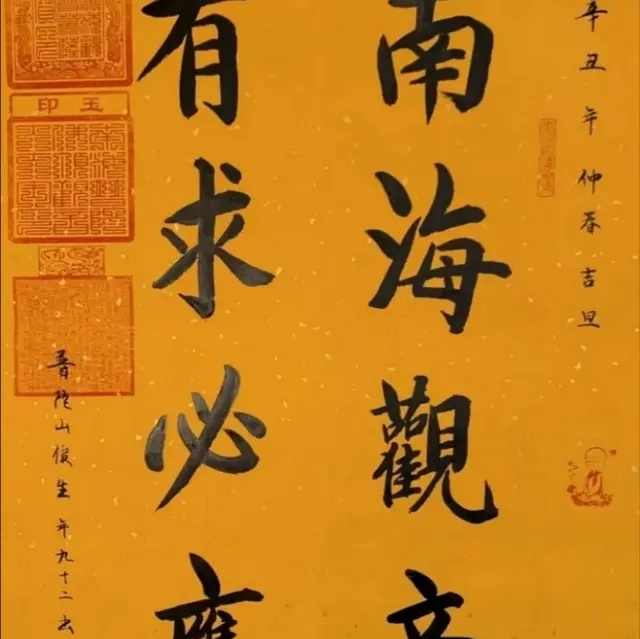 辛丑年仲春吉旦
南海觀音
有求必應
普陀山俊生年九十二书
玉印